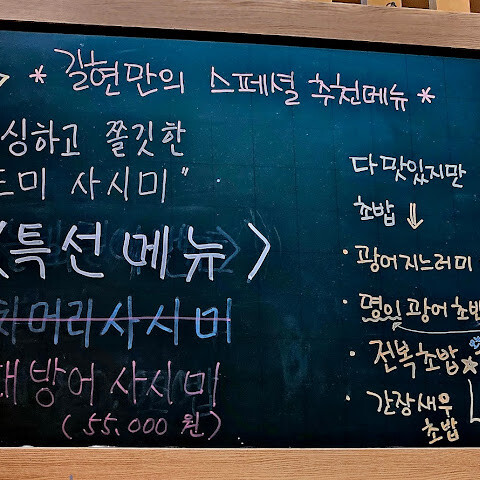 * 길현만의 스페셜 추천메뉴 *
싱하고 쫄깃한
도미 사시미"
<특선메뉴>
머리사시미
대방어 사시미
(55.000 원)
다 맛있지만
초밥 ⇓
· 광어지느러미
· 명인 광어 초밥
· 전복초밥☆
· 간장새우
초밥